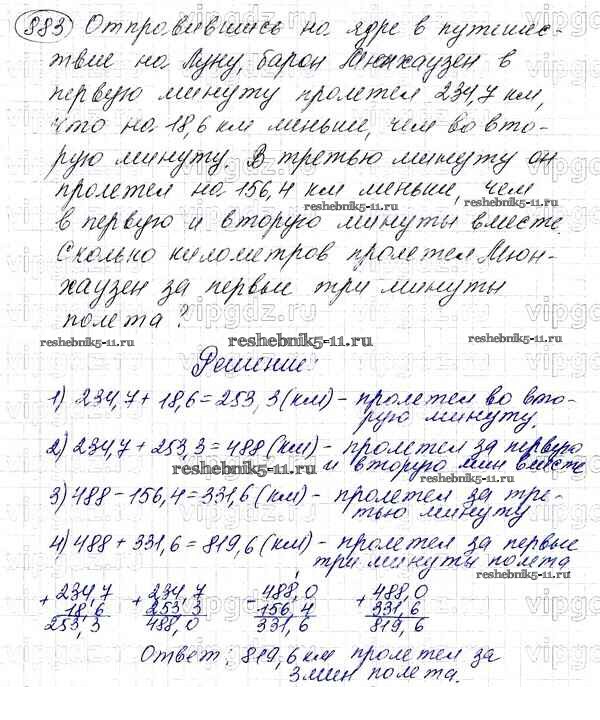 883 Отправившись на ядре в путешес-
твие на Луну, барон Мюнхаузен в
первую минуту пролетел 234,7 км,
что на 18,6 км меньше, чем во вто-
рую минуту. В третью минуту он
пролетел на 156,4 км меньше, чем
reshebnik5-11.ru reshebnik5-11.ru
в первую и вторую минуты вместе.
Сколько километров пролетел Мюн-
хаузен за первые три минуты
полета?
reshebnik5-11.ru reshebnik5-11.ru reshebnik5-11.ru
Решение:
1) 234,7 + 18,6 = 253,3 (км) - пролетел во вто-
рую минуту.
2) 234,7 + 253,3 = 488 (км) - пролетел за первую
и вторую мин вместе
reshebnik5-11.ru reshebnik5-11.ru
3) 488 - 156,4 = 331,6 (км) - пролетел за тре-
тью минуту
4) 488 + 331,6 = 819,6 (км) - пролетел за первые
три минуты полета
+ 234,7 + 234,7 - 488,0 + 488,0
18,6 253,3 156,4 331,6
253,3 488,0 331,6 819,6
Ответ: 819,6 км пролетел за
3 мин полета.
vipgdz.ru